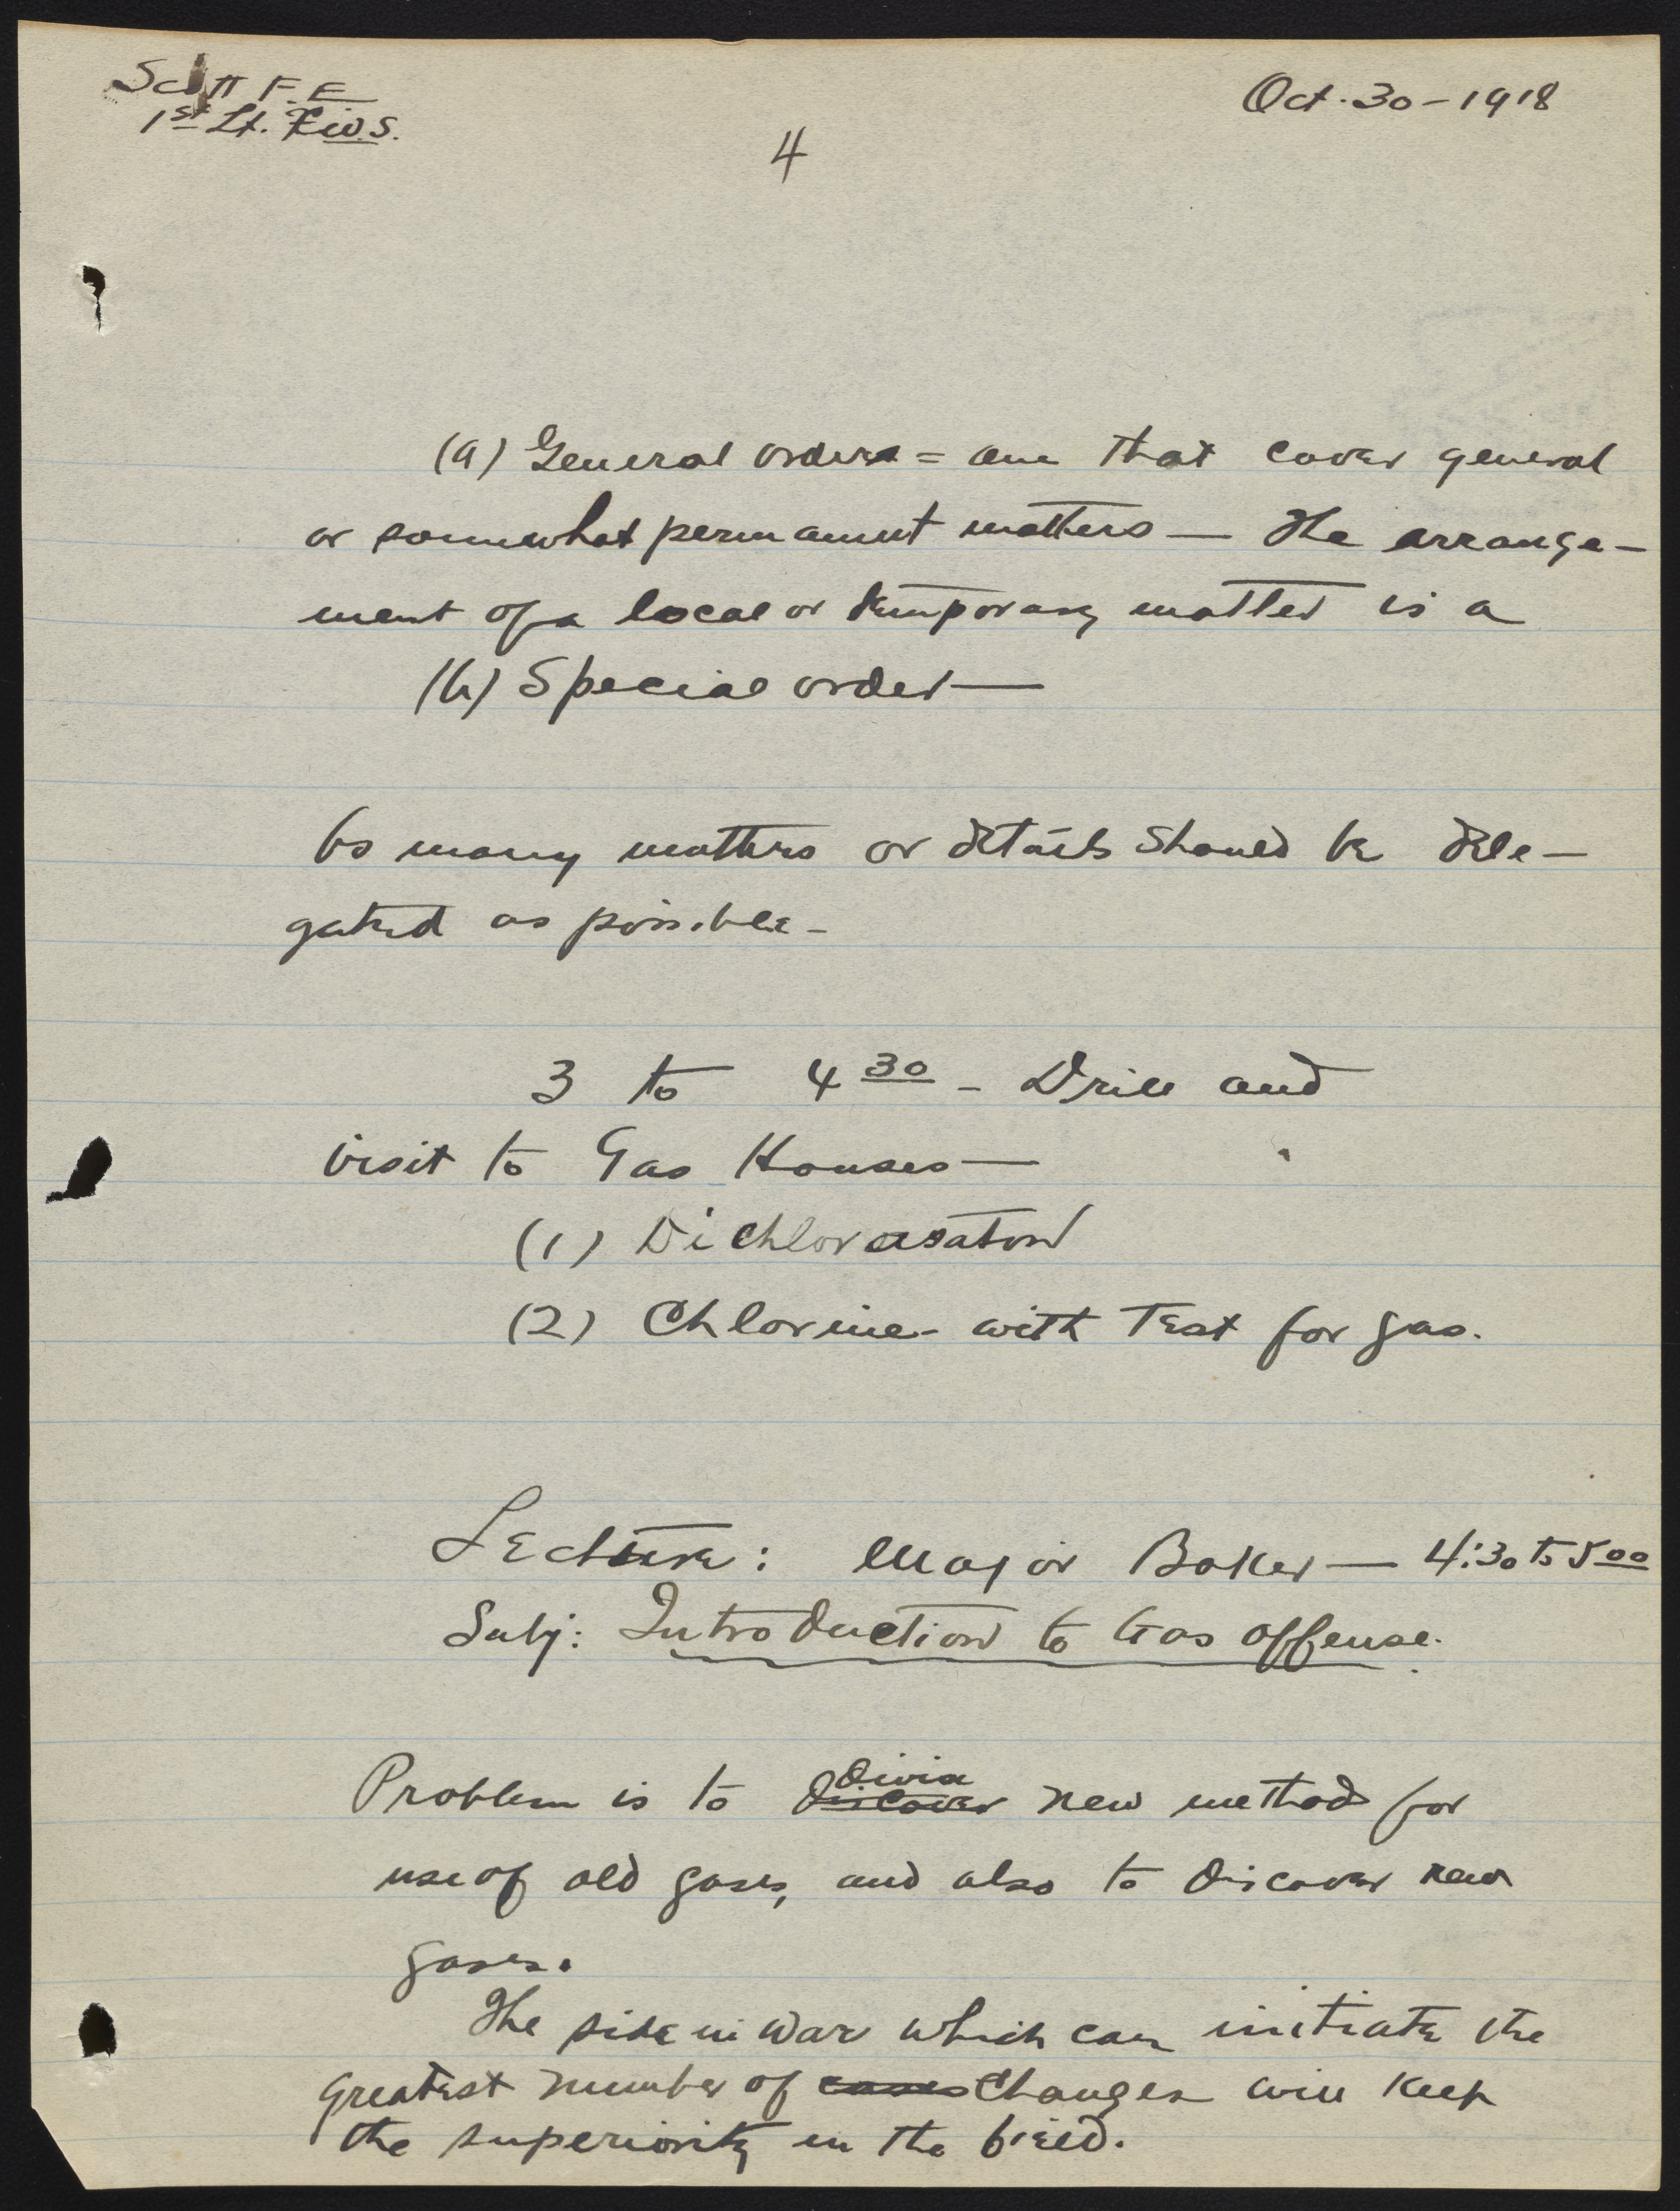 Scott F. E
1st Lt. C.W.S.
Oct. 30 - 1918
4
(a) General orders = one that cover general
or somewhat permanent matters — The arrange-
ment of a local or temporary matter is a
(b) Special order —
As many matters or details should be dele-
gated as possible -
3 to 4 30 - Drill and
visit to Gas Houses —
(1) Dichlor
(2) Chlorine - with Test for gas.
Lecture: Major Baker — 4:30 to 5 00
Subj: Introduction to Gas offense.
Devise
Problem is to discover new method for
use of old gases, and also to discover new
gases.
The side in war which can initiate the
greatest number of cases Changes will keep
the superiority in the field.